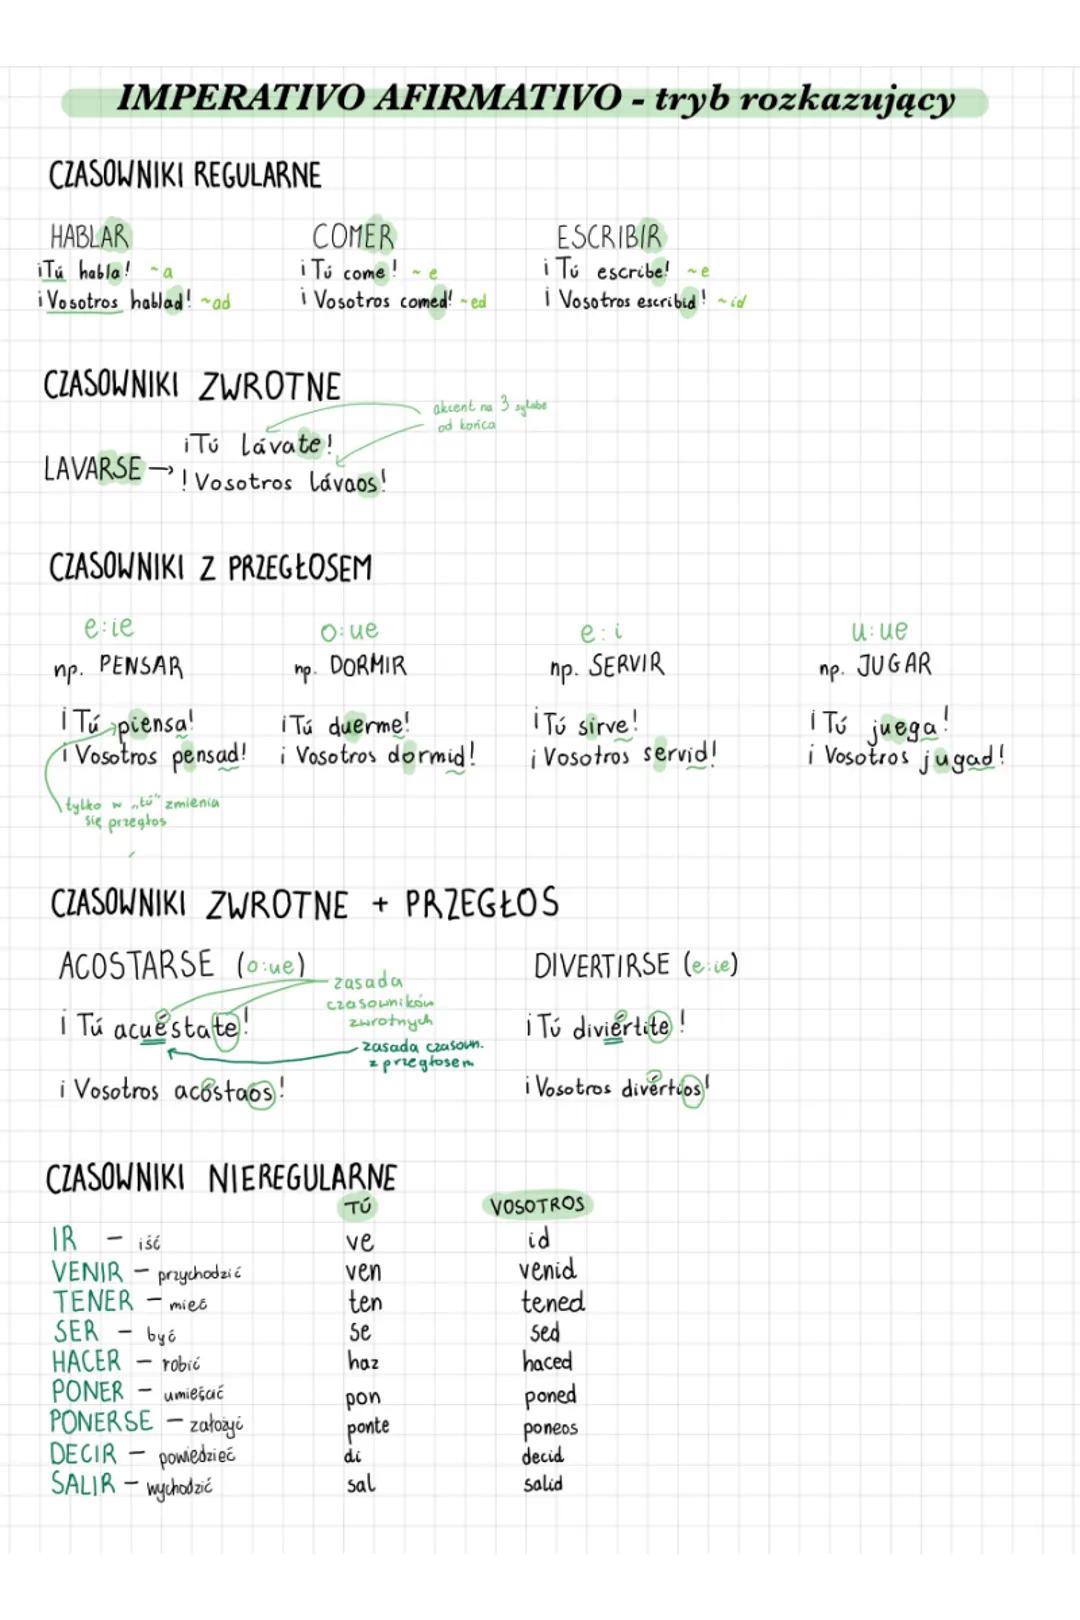 IMPERATIVO AFIRMATIVO - tryb rozkazujący
CZASOWNIKI REGULARNE
HABLAR COMER ESCRIBIR
¡Tú habla! ~a ¡Tú come! ~e ¡Tú escribe! ~e
¡Vosotros hablad! ~ad ¡Vosotros comed! ~ed ¡Vosotros escribid! ~id
CZASOWNIKI ZWROTNE
akcent na 3 sylabę
od końca
¡Tú lávate!
LAVARSE →
! Vosotros lávaos!
CZASOWNIKI Z PRZEGŁOSEM
e:ie o:ue e:i u:ue
np. PENSAR np. DORMIR np. SERVIR np. JUGAR
¡Tú piensa! ¡Tú duerme! ¡Tú sirve! ¡Tú juega!
¡Vosotros pensad! ¡Vosotros dormid! ¡Vosotros servid! ¡Vosotros jugad!
tylko w „tú" zmienia
się przegłos
CZASOWNIKI ZWROTNE + PRZEGŁOS
ACOSTARSE (o:ue) DIVERTIRSE (e:ie)
zasada
czasowników
zwrotnych
¡Tú acuéstate! ¡Tú diviértite!
zasada czasown.
z przegłosem
¡Vosotros acóstaos! ¡Vosotros divértios!
CZASOWNIKI NIEREGULARNE
TÚ VOSOTROS
IR - iść ve id
VENIR - przychodzić ven venid
TENER - mieć ten tened
SER - być se sed
HACER - robić haz haced
PONER - umieścać pon poned
PONERSE - założyć ponte poneos
DECIR - powiedzieć di decid
SALIR - wychodzić sal salid